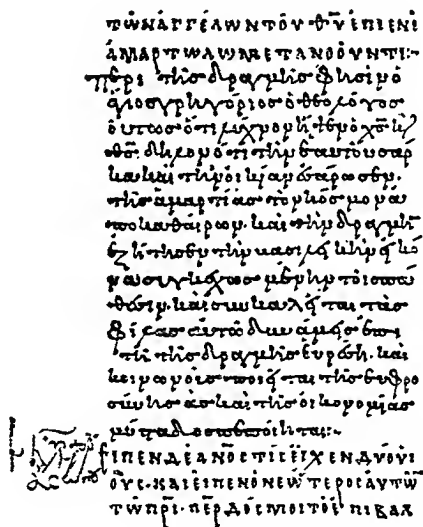 ΤΩΝ ΑΓΓΕΛΩΝ ΤΟΥ Θ͞Υ ΕΠΙ ΕΝΙ
ΑΜΑΡΤΩΛΩ ΜΕΤΑΝΟΟΥΝΤΙ:
περὶ τῆς δραχμῆς φησὶν ὁ
ἅγιος γρηγόριος ὁ θεολόγος
οὕτως ὅτι λύχνον ἧψεν ὁ χ͞ς κ̀
θ͞ς. δηλονότι τὴν ἑαυτοῦ σάρ
κα καὶ τὴν οἰκίαν ἐσάρωσεν.
τῆς ἁμαρτίας τὸν κόσμον ἀ
ποκαθαίρων. καὶ τὴν δραχμὴν
ἐζήτησεν τὴν βασιλικὴν εἰκό
να συγκεχωσμένην τοῖς πά
θεσιν. καὶ συγκαλεῖται τὰς
φίλας αὐτῶ δυνάμεις ἐπι
τῆ τῆς δραχμῆς εὑρέσει. καὶ
κοινωνοὺς ποιεῖται τῆς εὐφρο
σύνης ἃς καὶ τῆς οἰκονομίας
πεποίηται:
ΕΙΠΕΝ ΔΕ ΑΝΟΣ ΤΙΣ ΕΙΧΕΝ ΔΥΟ ΥΙ
ΟΥΣ. ΚΑΙ ΕΙΠΕΝ Ο ΝΕΩΤΕΡΟΣ ΑΥΤΩ͂
ΤΩ ΠΡΙ. ΠΕΡ ΔΟΣ ΜΟΙ ΤΟ ΕΠΙΒΑΛ